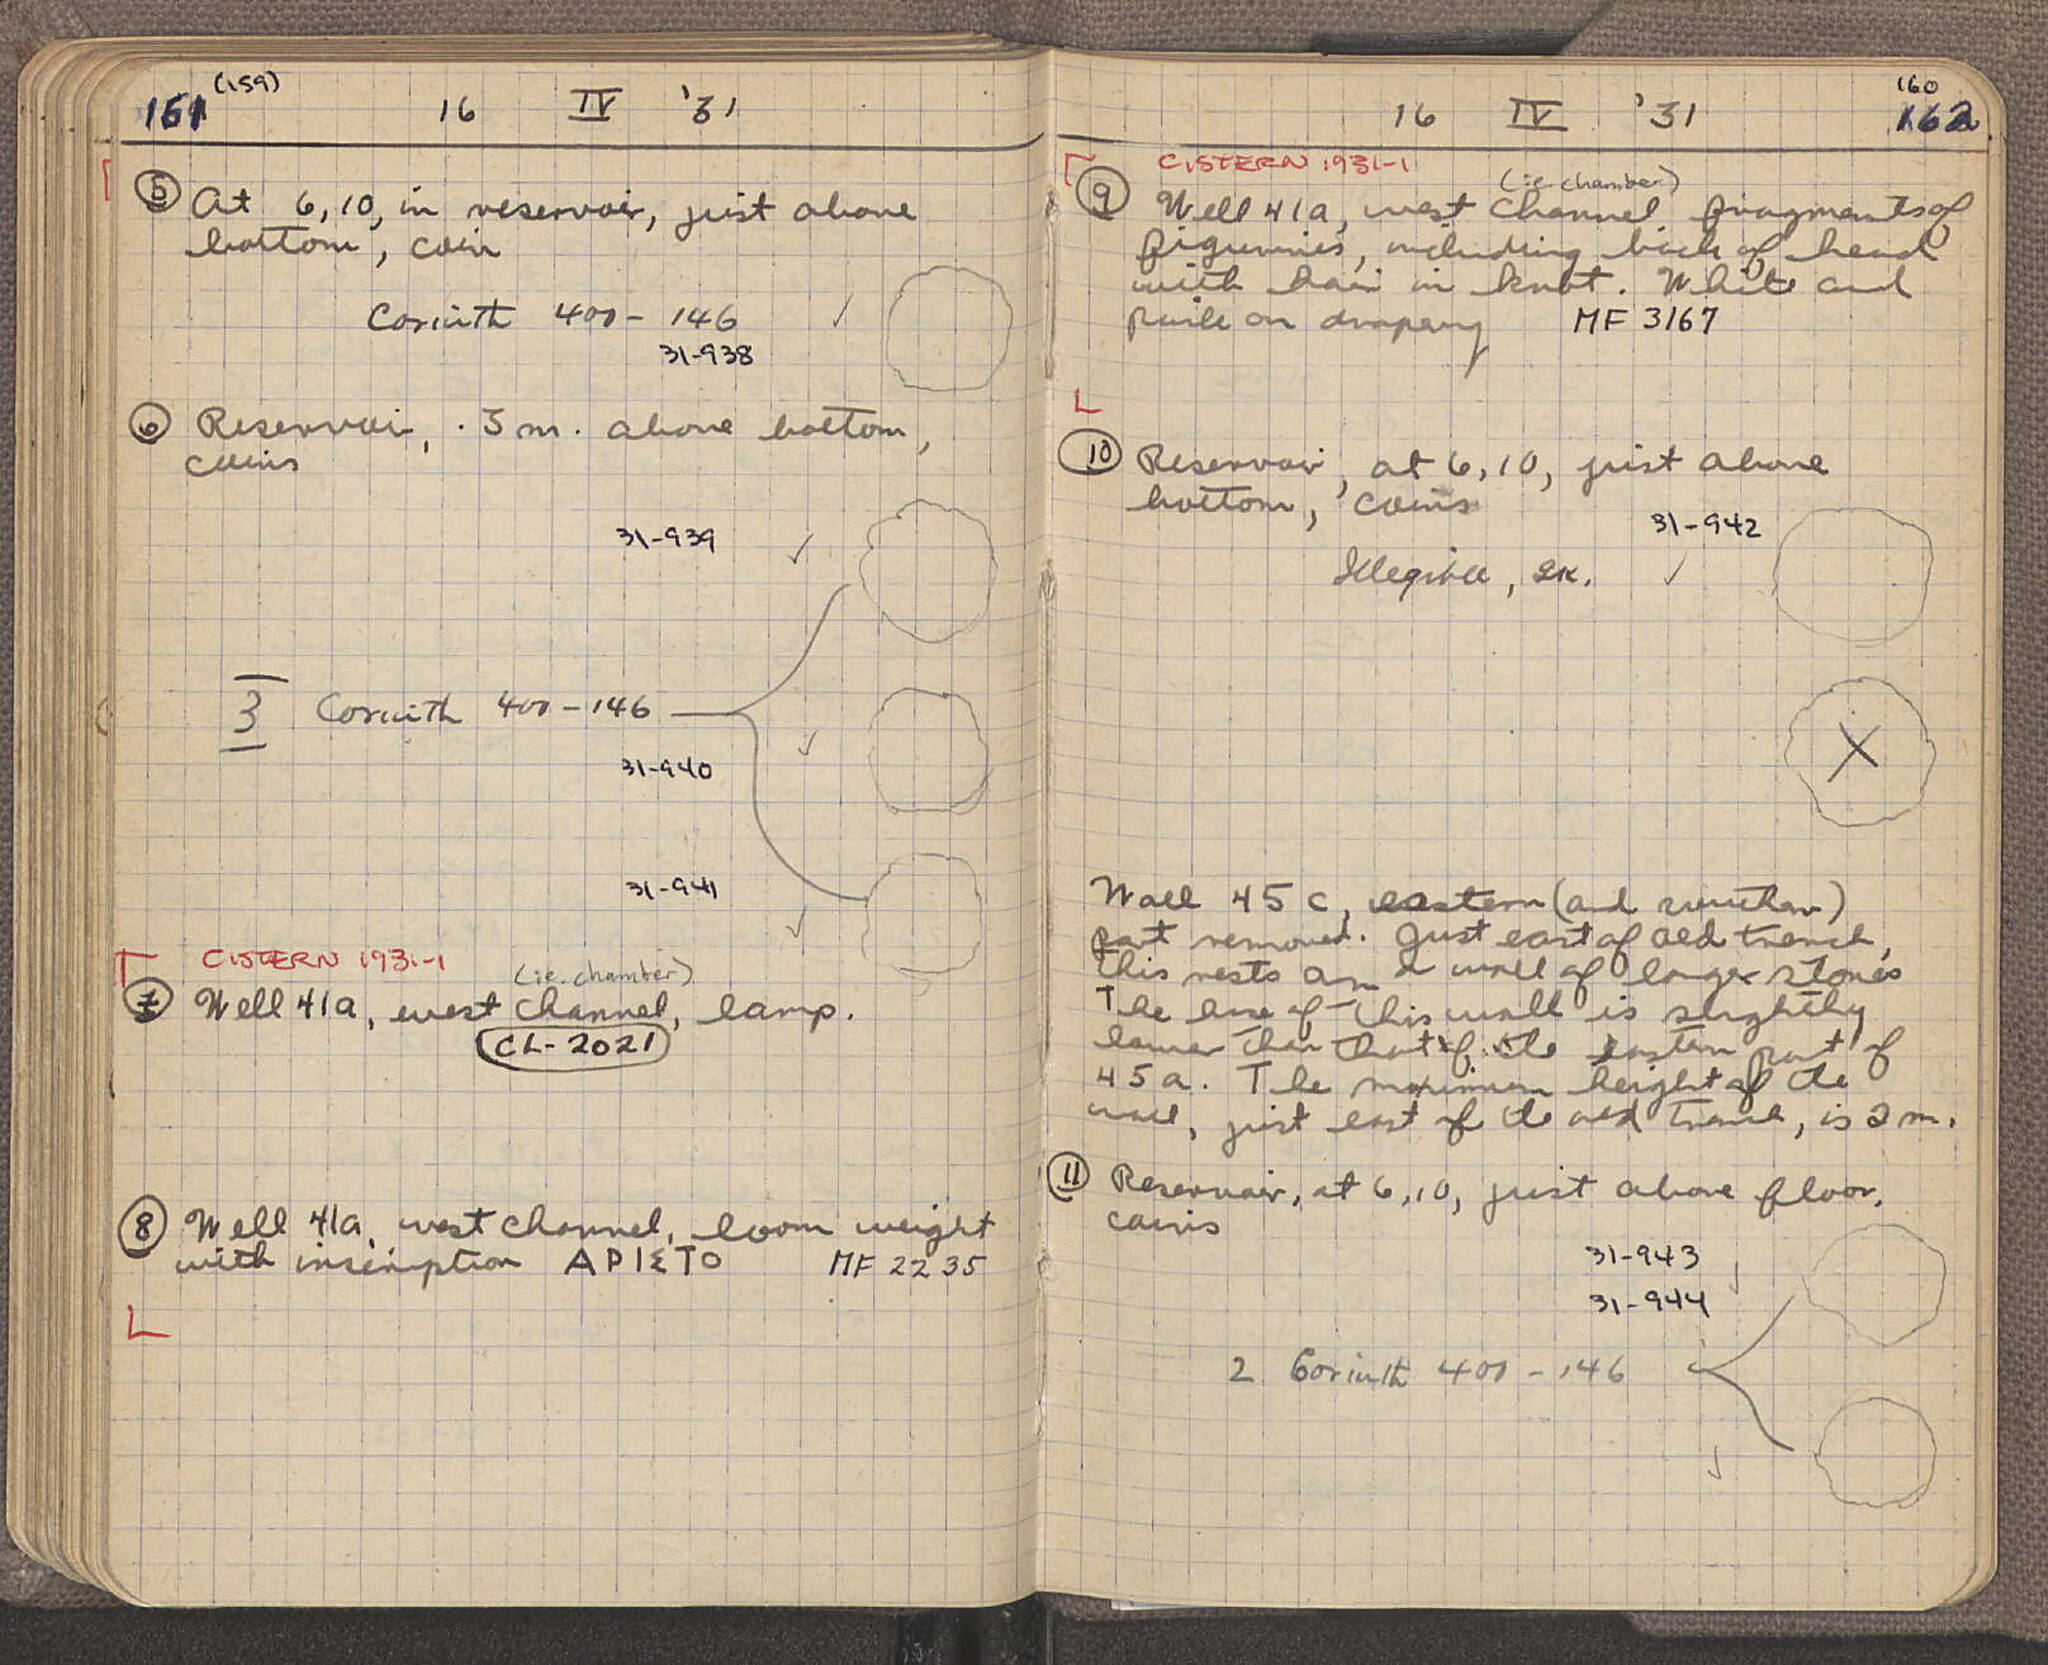 161 (159) 16 IV '31
5 At 6,10, in reservoir, just above
bottom, coin
Corinth 400-146 ✓
31-938
6 Reservoir, .3 m. above bottom,
coins
31-939 ✓
3 Corinth 400-146
✓
31-940
31-941
✓
CISTERN 1931-1
(i.e. chamber)
7 Well 41a, west channel, lamp.
CL-2021
8 Well 41a, west channel, loom weight
with inscription ΑΡΙΣΤΟ MF 2235
160
16 IV '31 162
CISTERN 1931-1
(i.e. chamber)
9 Well 41a, west channel fragments of
figurines, including back of head
with hair in knot. White and
on drapery MF 3167
10 Reservoir, at 6,10, just above
bottom, coins
31-942
Illegible, Gk. ✓
X
Wall 45 c, eastern (and southern)
part removed. Just east of old trench,
this rests on a wall of larger stones
The base of this wall is slightly
lower than that of the eastern part of
45 a. The maximum height of the
wall, just east of the old trench, is 2 m.
11 Reservoir, at 6,10, just above floor,
coins
31-943 ✓
31-944
2 Corinth 400-146
✓